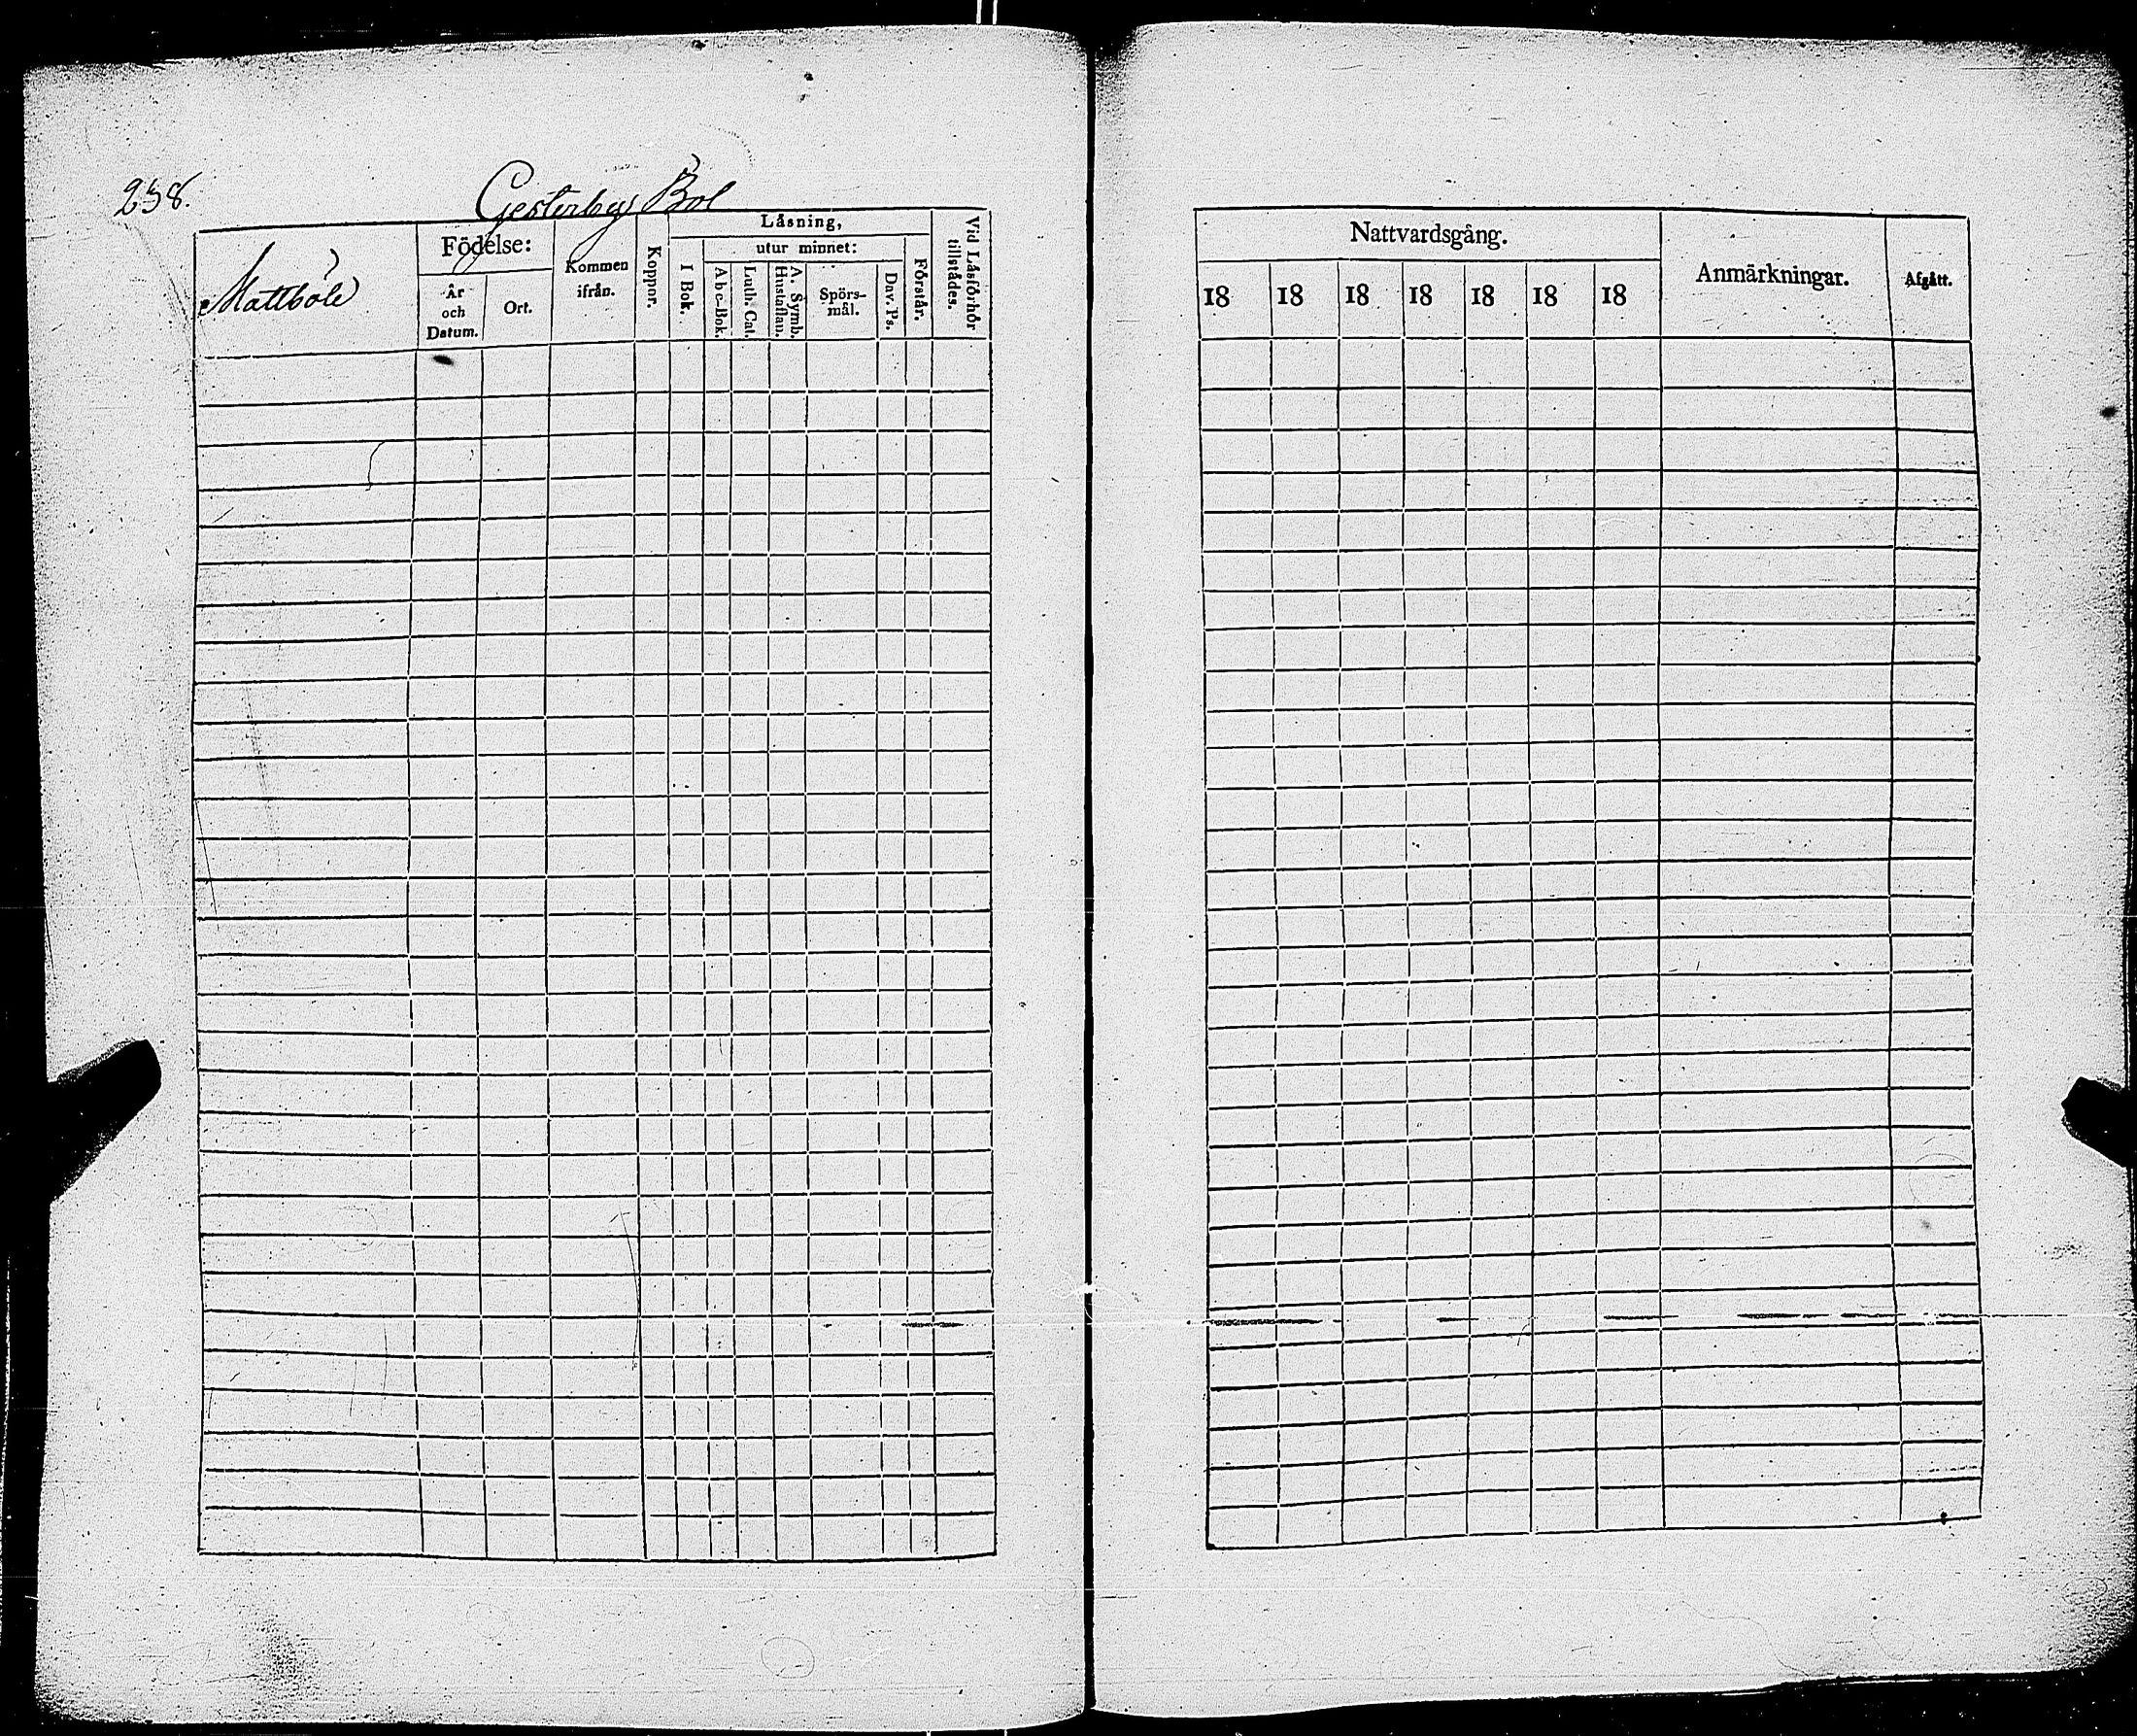 238.
Gesterby Bol
Mattböle
Födelse:
År
och
Datum.
Ort.
Kommen
ifrån.
Koppor.
Läsning,
I Bok.
utur minnet:
A b c-Bok.
Luth. Cat.
A. Symb.
Hustaflan.
Spörs-
mål.
Dav. Ps.
Förstår.
Vid Läsförhör
tillstädes.
Nattvardsgång.
18 18 18 18 18 18 18
Anmärkningar.
Afgått.